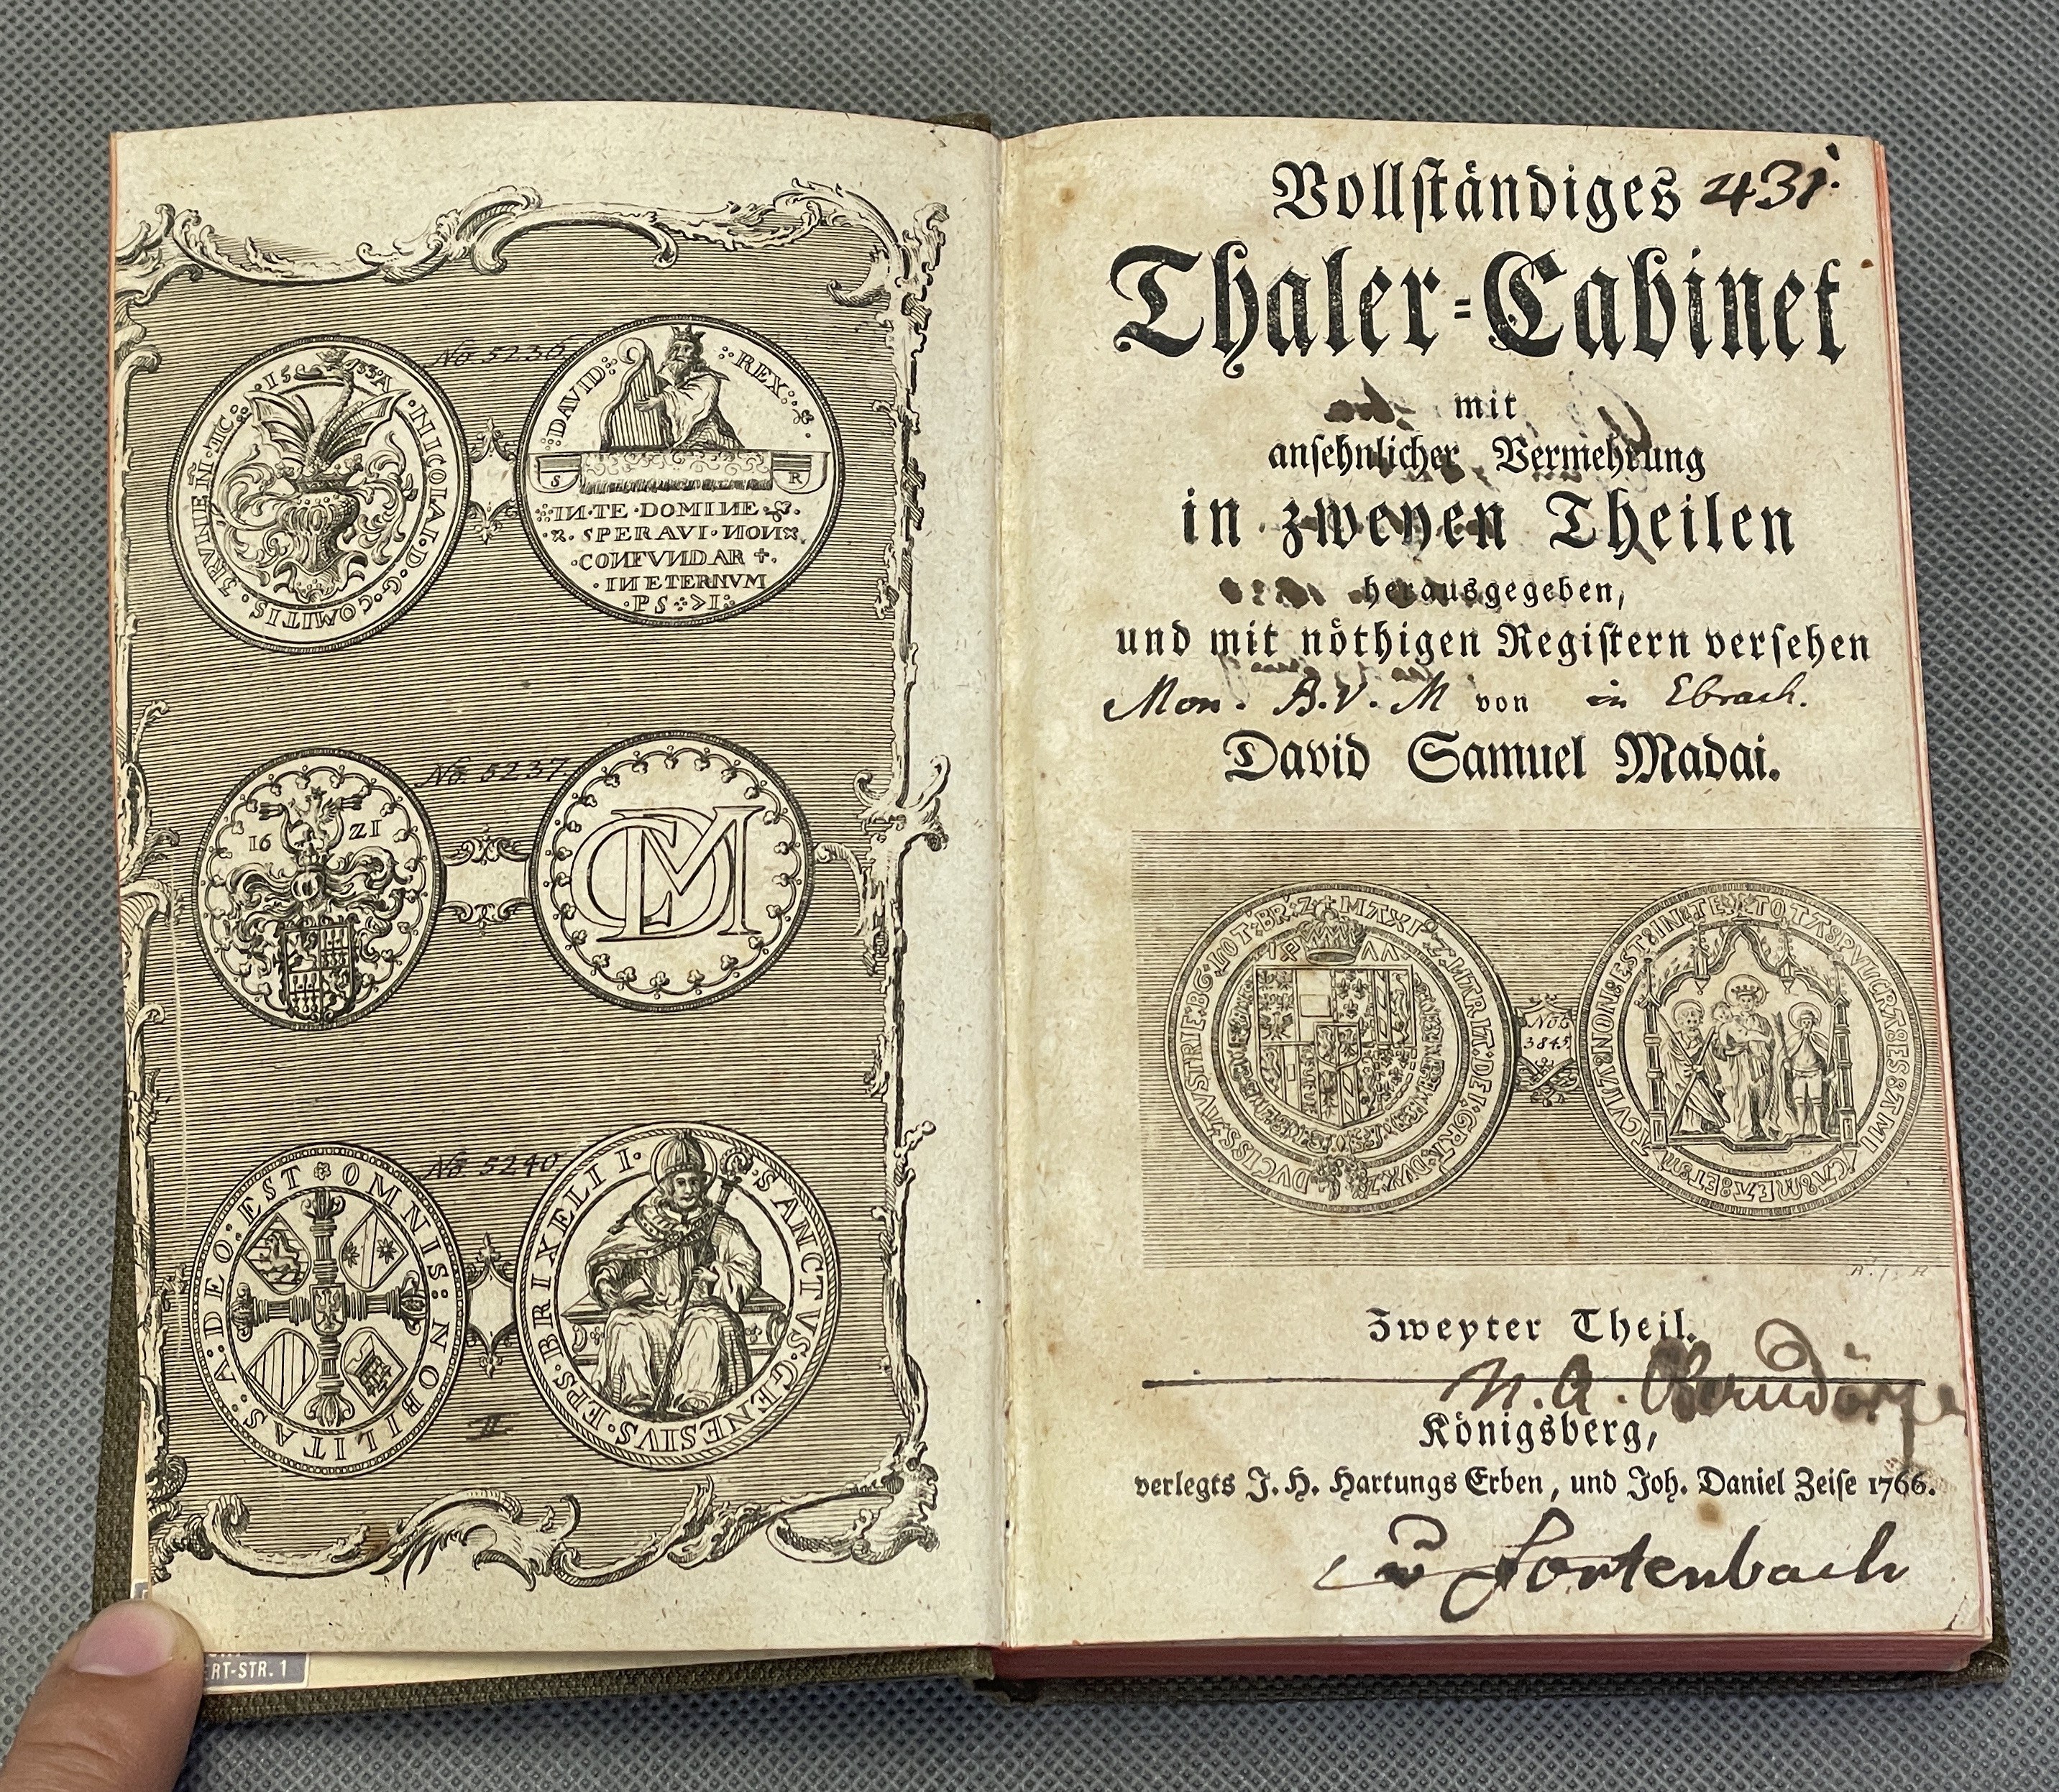 No. 5236.
15 33 A · NICOLAI · D · G · COMITIS ·
DAVID REX
S R
IN · TE · DOMINE
SPERAVI · NON
CONFVNDAR
IN ETERNVM
· PS
No. 5237.
16 21
No. 5240
OMNIS : NOBILITAS · A : DEO : EST
SANCTVS · GENESIVS · EPS · BRIXELII ·
II.
RT-STR. 1
Vollständiges 431.
Thaler-Cabinet
mit
ansehnlicher Vermehrung
in zweyen Theilen
herausgegeben,
und mit nöthigen Registern versehen
Mon. B.V.M von in Ebrach.
David Samuel Madai.
No.
3845
Zweyter Theil.
Königsberg,
verlegts J. H. Hartungs Erben, und Joh. Daniel Zeise 1766.
v Fortenbach